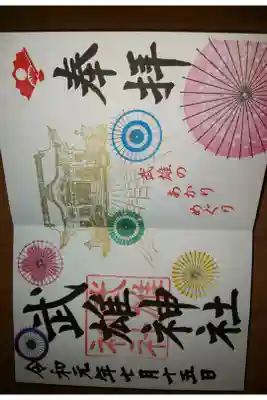 奉拝
武雄の
あかり
めぐり
武雄神社
令和元年七月十五日